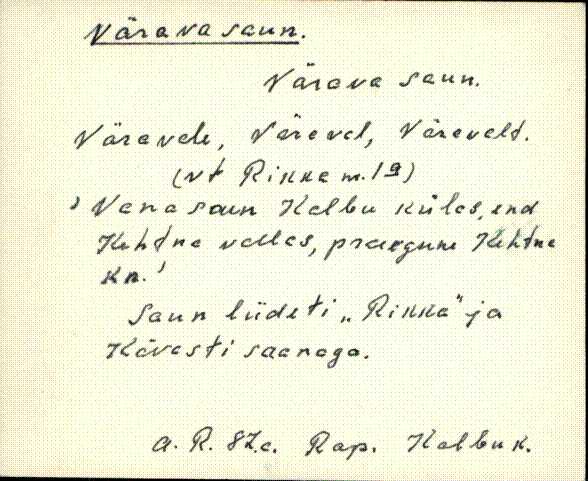 Värava saun.
Värava saun.
Väravale, Väraval, Väravalt.
(vt Rikka m. 1 a)
' Vana saun Kalbu külas, end
Kehtna vallas, praegune Kehtna
kn. '
Saun liideti „Rikka" ja
Kävasti saanaga.
a. R. 87.a. Rap. Kalbu k.